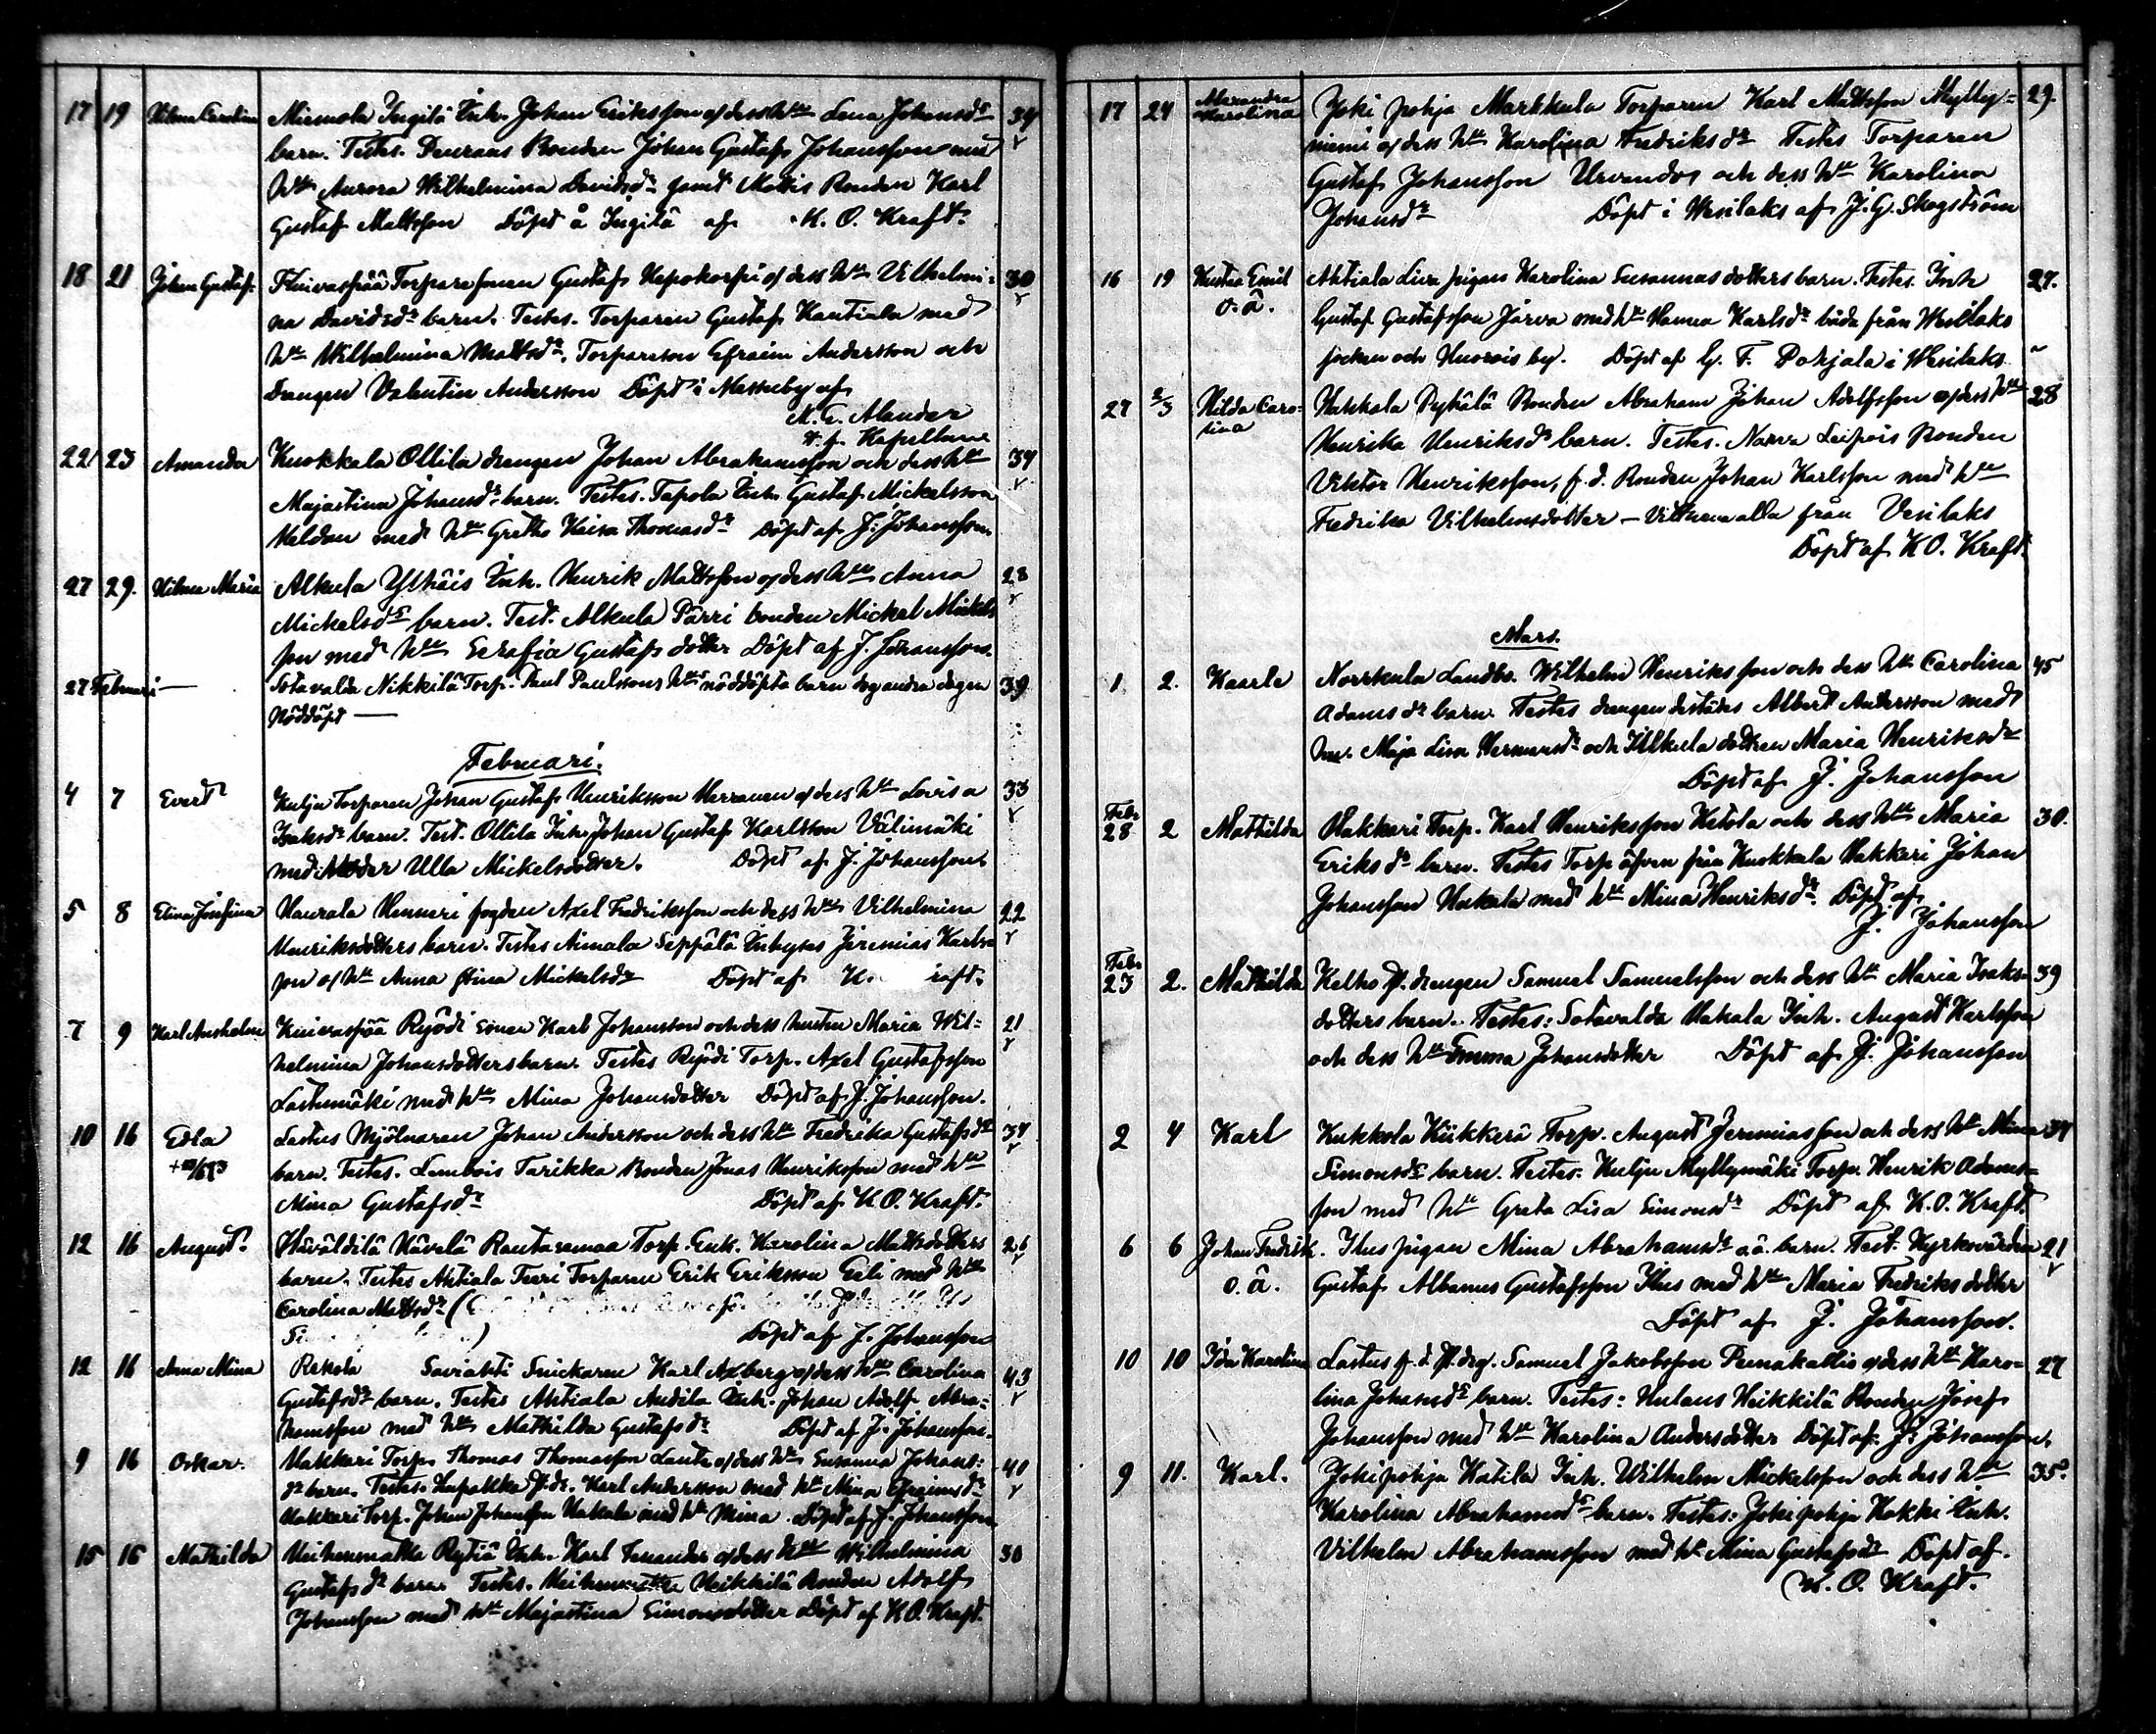 17 19 Hilma Carolina Miemola Ingilä Inh. Johan Eriksson o/ dess Hu Lena Johansdr 34
barn. Testes. Bonden Johan Gustaf Johansson med
Hu Aurora Wilhelmina Davidsdr samt Mattis Bonden Karl
Gustaf Mattsson Döpt å Ingilä af K. O. Kraft.
18 21 Johan Gustaf Kuivaspää Torparesonen Gustaf Hepokorpi o/ dess Hu Vilhelmi= 30
na Davidsdr barn. Testes. Torparen Gustaf Kantiala med
Hu Wilhelmina Mattsdr, Torpareson Efraim Andersson och
Drengen Valentin Andersson Döpt i Messuby af
K. E. Alander
v. p. Kapellan
22 23 Amanda Kuokkala Ollila drengen Johan Abrahamsson och dess Hu 34
Majastina Johansdr barn. Testes. Tapola Inh. Gustaf Mickelsson
Meldan med Hu Greta Kaisa Thomasdr Döpt af J. Johansson.
27 29. Hilma Maria Alkula Ythäis Inh. Henrik Mattsson o/ dess Hu Anna 28
Mickelsdr barn. Test. Alkula Pärri bonden Mickel Mickels
son med Hu Serafia Gustafsdotter Döpt af J. Johansson.
27 Februari — Sotavalda Nikkilä Torp. Paul Paulssons Hus nöddöpta barn dog andra dagen 39
Nöddöpt —
Februari.
4 7 Evert Kulju Torparen Johan Gustaf Henriksson Herranen o/ dess Hu Lovisa 33
Isaksdr barn. Test. Ollila Inh. Johan Gustaf Karlsson Välimäki
med Moder Ulla Mickelsdotter. Döpt af J. Johansson
5 8 Elina Josefina Haurala Hemmeri fogden Axel Fredriksson och dess Hu Vilhelmina 22
Henriksdotters barn. Testes Aimala Seppälä Inhyses Jeremias Karls=
son o/ Hu Anna Stina Mickelsdr Döpt af K. raft.
7 9 Karl Anshelm Kuivaspää Ryödi sonen Karl Johansson och dess hustru Maria Wil= 21
helmina Johansdotters barn. Testes Ryödi Torp. Axel Gustafsson
Lastumäki med Hu Mina Johansdotter Döpt af J. Johansson.
10 16 Edla Lastus Mjölnaren Johan Andersson och dess Hu Fredrika Gustafsdr 34
barn. Testes. Lembois Tarikka Bonden Jonas Henriksson med Hu
Mina Gustafsdr Döpt af K O. Kraft.
12 16 August. Hävelä Rautasemaa Torp. Enk. Karolina Mattsdotters 26
barn. Testes Ahtiala Teeri Torparen Erik Eriksson Eeli med Hu
Carolina Mattsdr (
Döpt af J. Johansson
12 16 Anna Mina Rekola Saviahti Snickaren Karl Axberg o/ dess Hu Carolina 43
Gustafsdr barn. Testes Ahtiala Andila Inh. Johan Adolf Abra=
hamsson med Hu Mathilda Gustafsdr Döpt af J. Johansson.
9 16 Oskar. Hakkari Torp. Thomas Thomasson Lauti o/ dess Hu Susanna Johans= 40
dr barn. Testes. Kapakka Karl Andersson med Hu Mina Efraimsdr
Hakkari Torp. Johan Johansson Hakala med Hu Mina. Döpt af J. Johansson
15 16 Mathilda Meihenmatka Rytiä Inh. Karl Fenander o/ dess Hu Wilhelmina 30
Gustafsdr barn Testes. Heikkilä Bonden Adolf
Johansson med Hu Majastina Simonsdotter Döpt af K O. Kraft.
17 24 Alexandra Karolina Jokipohja Markkula Torparen Karl Mattsson Mylly= 29.
niemi o/ dess Hu Karolina Fredriksdr Testes Torparen
Gustaf Johansson Urvendos och dess Hu Karolina
Johansdr Döpt i Wesilaks af J. G. Skogström
16 19 Kustaa Emil Ahtiala Liira pigans Karolina Susannasdotters barn. Testes. Inh 27.
o. ä. Gustaf Gustafsson Järva med Hu Hanna Karlsdr båda från Wesilaks
socken och Huorois by. Döpt af G. F. Pohjala i Wesilaks
27 2/3 Hilda Caro= Hakkala Pyhälä Bonden Abraham Johan Adolfsson o/ dess Hu 28
lina Henrika Henriksdr barn. Testes. Narva Leipois Bonden
Viktor Henriksson, f. d. Bonden Johan Karlsson med Hu
Fredrika Vilhelmsdotter — alla från Vesilaks
Döpt af K O. Kraft.
Mars.
1 2. Kaarle Norrkula Landbo. Wilhelm Henriksson och dess Hu Carolina 45
Adamsdr barn. Testes drengen Albert Andersson med
Hu. Maja Lisa Hermansdr och Alkula dottren Maria Henriksdr
Döpt af J. Johansson
Febr
28 2 Mathilda Hakkari Torp. Karl Henriksson Ketola och dess Hu Maria 30.
Eriksdr barn. Testes Torp äfven från Kuokkala Hakkari Johan
Johansson Hakala med Hu Mina Henriksdr. Döpt af
J. Johansson
Febr
23 2. Mathilda Kelho drengen Samuel Samuelsson och dess Hu Maria Isaks= 39
dotters barn. Testes: Sotavalda Hakala Inh. August Karlsson
och dess Hu Emma Johansdotter Döpt af J. Johansson
2 4 Karl Kukkola Kükkerä Torp. August Jeremiasson och dess Hu Mina 34
Simonsdr barn. Testes. Kulju Myllymäki Torp. Henrik Adams=
son med Hu Greta Lisa Simonsdr Döpt af K. O. Kraft.
6 6 Johan Fredrik. Ilus pigan Mina Abrahamsdr o.ä. barn. Test. Kyrkvärden 21
o. ä. Gustaf Albanus Gustafsson Ilus med Hu Maria Fredriksdotter
Döpt af J. Johansson.
10 10 Ida Karolina Lastus f. d. Samuel Jakobsson Punakallio o/ dess Hu Karo= 27
lina Johansdr barn. Testes: Hulaus Heikkilä Bonden Josef
Johansson med Hu Karolina Andersdotter Döpt af J. Johansson.
9 11. Karl. Jokipohja Katila Inh. Wilhelm Mickelsson och dess Hu 35.
Karolina Abrahamsdr barn. Testes: Jokipohja Hokki Inh.
Vilhelm Abrahamsson med Hu Mina Gustafsdr Döpt af.
K. O. Kraft.